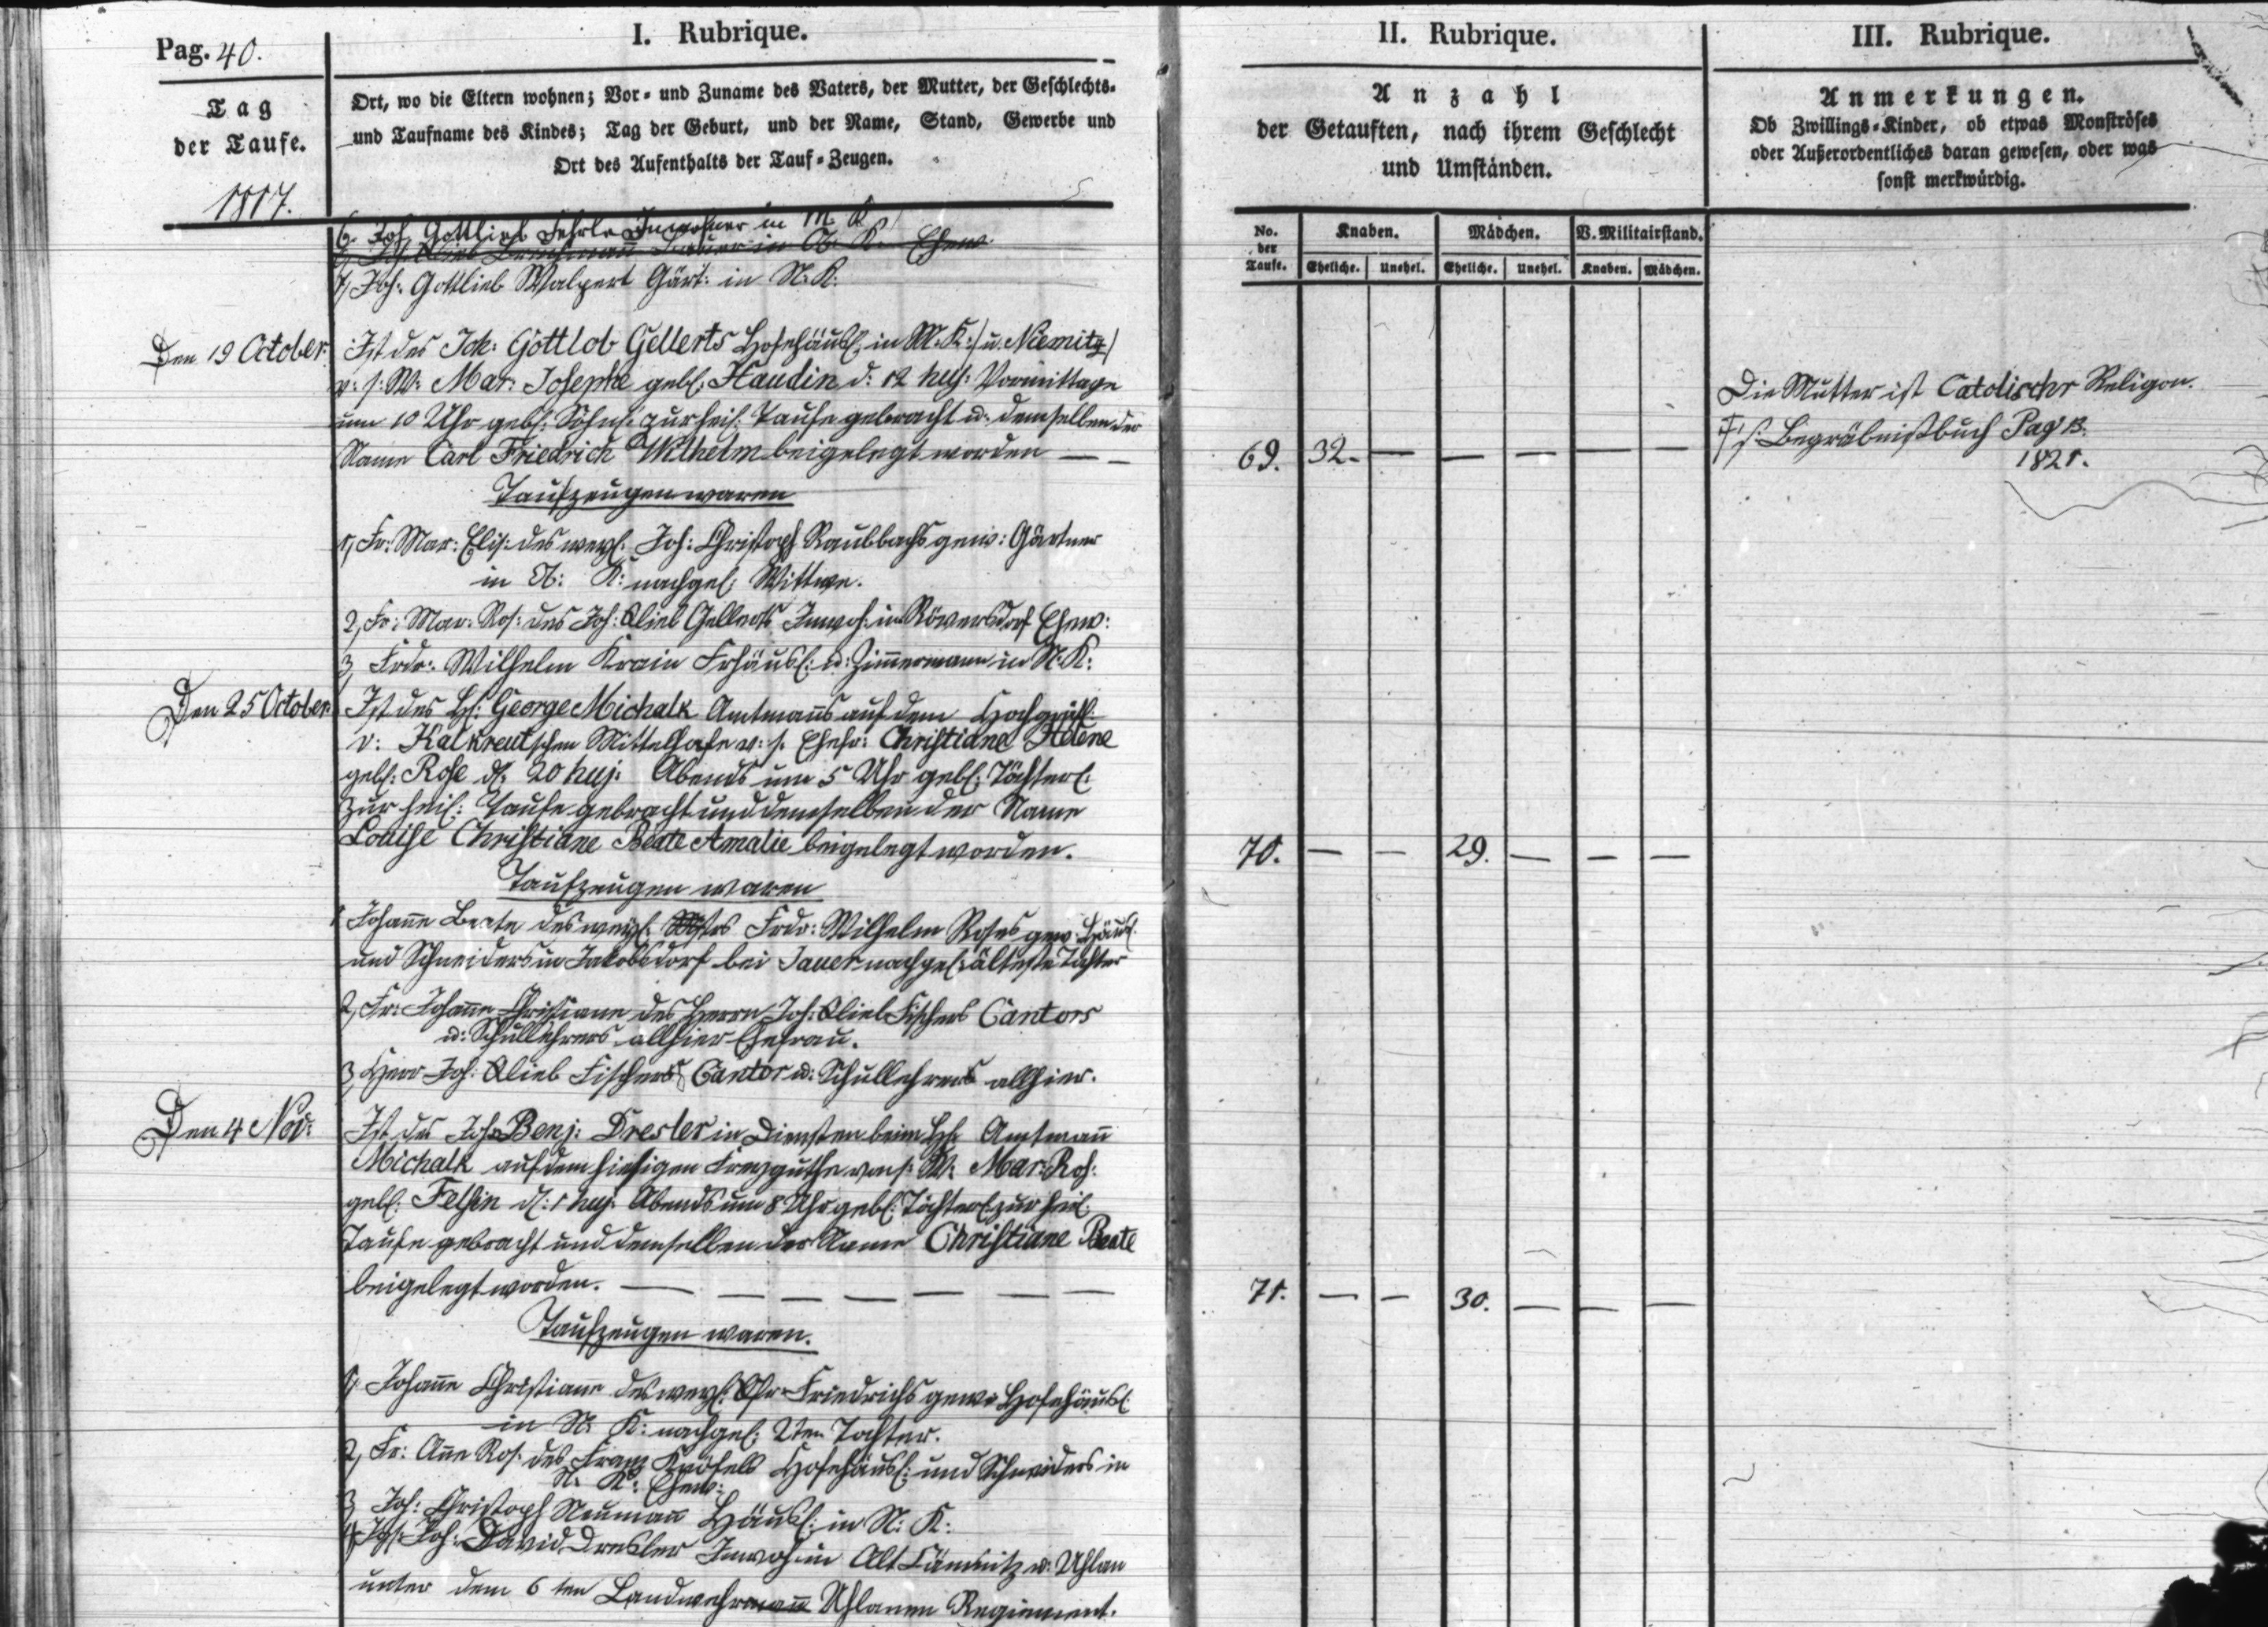 Pag. 40.
I. Rubrique.
II. Rubrique.
III. Rubrique.
Tag
der Taufe.
1817.
Ort, wo die Eltern wohnen; Vor- und Zuname des Vaters, der Mutter, der Geschlechts-
und Taufname des Kindes; Tag der Geburt, und der Name, Stand, Gewerbe und
Ort des Aufenthalts der Tauf-Zeugen.
Anzahl
der Getauften, nach ihrem Geschlecht
und Umständen.
Anmerkungen.
Ob Zwillings-Kinder, ob etwas Monströses
oder Außerordentliches daran gewesen, oder was
sonst merkwürdig.
No. der Taufe.
Knaben. Mädchen. V. Militairstand.
Eheliche. Unehel. Eheliche. Unehel. Knaben. Mädchen.
6. Joh. Gottlieb Inwohner in M. K.
7, Joh: Gottlieb Walpert Gärt: in N. K.
Den 19 October.
Ist des Joh: Gottlob Gellerts Hofehäusl: in M. K. /u. Niemitz/
v: s: W: Mar: Josephe geb: Haudin d: 12 huj: Vormittags
um 10 Uhr geb: Söhnl: zur heil: Taufe gebracht u: demselben der
Name Carl Friedrich Wilhelm beigelegt worden — —
69. 32. — — — — —
Die Mutter ist Catolischr Religon.
† s. Begräbnißbuch Pag 13.
1821.
Taufzeugen waren
1, Fr: Mar: Elis: des weyl: Joh: Christoph Raubbachs gew: Gärtner
in K: nachgel: Wittwe.
2, Fr: Mar: Ros: des Joh: Glieb Gellerts Inwoh: in Röversdorf Ehew:
3, Frdr: Wilhelm Krain Frhäusl: u: Zimmermann in N. K:
Den 25 October
Ist des H: George Michalk Amtmanns auf dem Hochgräfl:
v: Kalkreutschen Mittelhofe v: s. Ehefr: Christiane Helene
geb: Rose d: 20 huj: Abends um 5 Uhr geb: Töchterl:
zur heil: Taufe gebracht und demselben der Name
Louise Christiane Beate Amalie beigelegt worden.
70. — — 29. — — —
Taufzeugen waren
1 Johanne Beate des weyl: Frdr: Wilhelm Roses gew: Häusl:
und Schneiders in Jakobsdorf bei Jauer nachgel: älteste Tochter
2, Fr: Johanne Christiane des Herrn Joh: Glieb Fischers Cantors
u: Schullehrers allhier Ehefrau.
3, Herr Joh: Glieb Fischers Cantor u: Schullehrers allhier.
Den 4 Nov:
Ist des Joh: Benj: Dresler in Diensten beim H: Amtmann
Michalk auf dem hiesigen Freyguthe von s: W: Mar: Ros:
geb: Felßin d: 1 huj: Abends um 8 Uhr geb: Töchterl: zur heil:
Taufe gebracht und demselben der Name Christiane Beate
beigelegt worden. — — — — — — —
71. — — 30. — — —
Taufzeugen waren.
1, Johanne Christiane des weyl: Friedrichs gew: Hofehäusl:
in N: K: nachgel: 2ten Tochter.
2, Fr: Anne Ros: des Franz Hofehäusl: und Schneiders in
N: K: Ehew:
3, Joh: Christoph Neumann Häusl: in N: K:
4, Joh: David Dresler Inwoh: in Alt u: Uhlan
unter dem 6ten Landwehr Uhlanen Regiement.